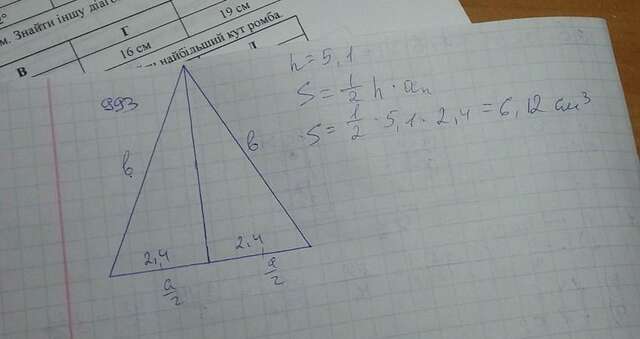 2°
м. Знайти іншу діаго
Г
19 см
В
16 см
найбільший кут ромба.
993
h = 5,1
S = 1/2 h · aₙ
S = 1/2 · 5,1 · 2,4 = 6,12 см³
b
b
2,4
2,4
a/2
a/2